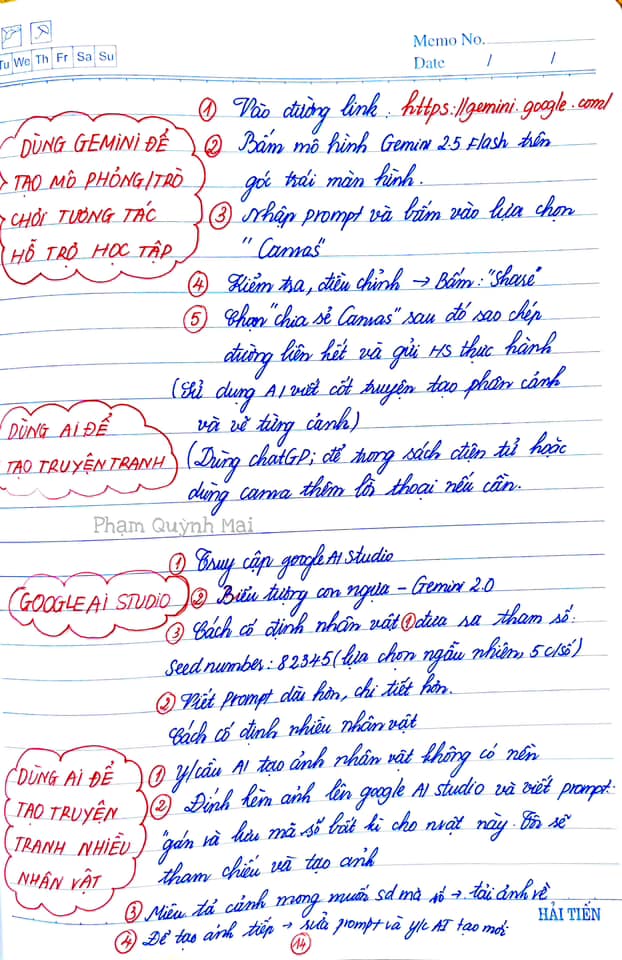 Tu We Th Fr Sa Su
Memo No.
Date / /
① Vào đường link: https://gemini.google.com/
DÙNG GEMINI ĐỂ
TẠO MÔ PHỎNG/TRÒ
CHƠI TƯƠNG TÁC
HỖ TRỢ HỌC TẬP
② Bấm mô hình Gemini 2.5 Flash trên
góc trái màn hình.
③ Nhập prompt và bấm vào lựa chọn
"Canvas"
④ Kiểm tra, điều chỉnh → Bấm: "Share"
⑤ Chọn "chia sẻ Canvas" sau đó sao chép
đường liên kết và gửi HS thực hành
DÙNG AI ĐỂ
TẠO TRUYỆN TRANH
(Sử dụng AI viết cốt truyện tạo phân cảnh
và vẽ từng cảnh)
(Dùng chatGP; để trong sách điện tử hoặc
dùng canva thêm lời thoại nếu cần.
Phạm Quỳnh Mai
GOOGLE AI STUDIO
① Truy cập google AI Studio
② Biểu tượng con ngựa - Gemini 2.0
③ Cách cố định nhân vật ① đưa ra tham số:
Seed number: 82345 (lựa chọn ngẫu nhiên, 5 c/số)
② Viết prompt dài hơn, chi tiết hơn.
Cách cố định nhiều nhân vật
DÙNG AI ĐỂ
TẠO TRUYỆN
TRANH NHIỀU
NHÂN VẬT
① Y/cầu AI tạo ảnh nhân vật không có nền
② Đính kèm ảnh lên google AI studio và viết prompt:
"gán và lưu mã số bất kì cho nvật này. Tôi sẽ
tham chiếu và tạo ảnh
③ Miêu tả cảnh mong muốn sd mã số → tải ảnh về
④ Để tạo ảnh tiếp → sửa prompt và y/c AI tạo mới
HẢI TIẾN
14